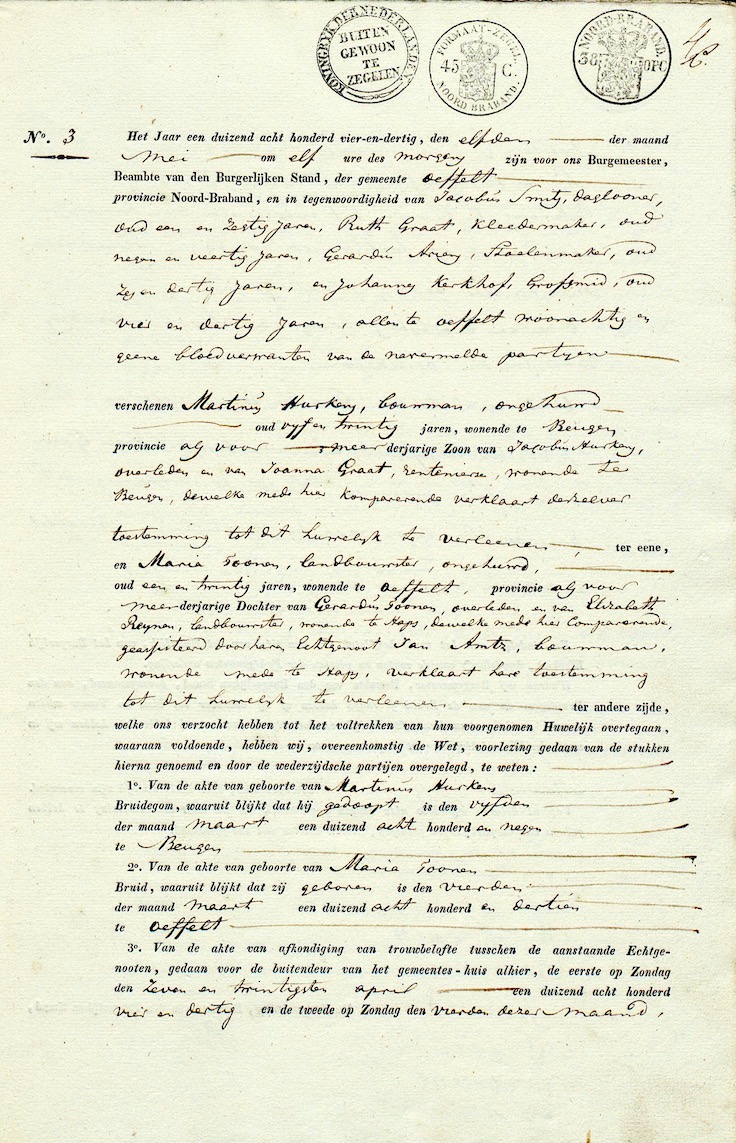 KONINGRYK DER NEDERLANDEN.
BUITEN
GEWOON
TE
ZEGELEN
FORMAAT-ZEGEL
45 C.
NOORD BRABAND.
NOORD-BRABAND.
38 OPC
No. 3
Het Jaar een duizend acht honderd vier-en-dertig, den elfden der maand
Mei om elf ure des morgens zijn voor ons Burgemeester,
Beambte van den Burgerlijken Stand, der gemeente Oeffelt
provincie Noord-Braband, en in tegenwoordigheid van Jacobus Smits, daglooner,
oud een en zestig Jaren, Ruth Graat, Kleedemaker, oud
negen en veertig Jaren, Gerardus Ariens, Stoelenmaker, oud
Zes en dertig Jaren, en Johannes Kerkhof, Grofsmid, oud
vier en dertig Jaren, allen te Oeffelt woonachtig en
geene bloedverwanten van de navermelde partyen
verschenen Martinus Hurkens, bouwman, ongehuwd
oud vyf en twintig jaren, wonende te Beugen
provincie als voor meerderjarige Zoon van Jacobus Hurkens,
overleden en van Joanna Graat, rentenierse, wonende te
Beugen, dewelke mede hier komparerende verklaart derzelver
toestemming tot dit huwelyk te verleenen, ter eene,
en Maria Toonen, landbouwster, ongehuwd,
oud een en twintig jaren, wonende te Oeffelt, provincie als voor
meerderjarige Dochter van Gerardus Toonen, overleden en van Elizabeth
Reynen, landbouwster, wonende te Haps, dewelke mede hier Comparerende,
geassisteerd door haren Echtgenoot Jan Arntz, bouwman,
wonende mede te Haps, verklaart hare toestemming
tot dit huwelyk te verleenen ter andere zijde,
welke ons verzocht hebben tot het voltrekken van hun voorgenomen Huwelijk overtegaan,
waaraan voldoende, hebben wij, overeenkomstig de Wet, voorlezing gedaan van de stukken
hierna genoemd en door de wederzijdsche partijen overgelegd, te weten:
1o. Van de akte van geboorte van Martinus Hurkens
Bruidegom, waaruit blijkt dat hij gedoopt is den vyfden
der maand maart een duizend acht honderd en negen
te Beugen
2o. Van de akte van geboorte van Maria Toonen
Bruid, waaruit blijkt dat zij geboren is den vierden
der maand maart een duizend acht honderd en dertien
te Oeffelt
3o. Van de akte van afkondiging van trouwbelofte tusschen de aanstaande Echtge-
nooten, gedaan voor de buitendeur van het gemeentes-huis alhier, de eerste op Zondag
den Zeven en twintigsten april een duizend acht honderd
vier en dertig en de tweede op Zondag den vierden dezer maand,